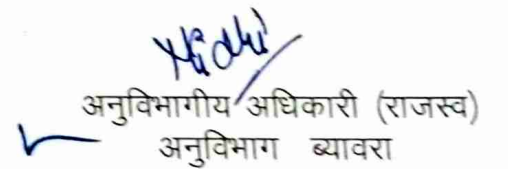 Nidhi
अनुविभागीय अधिकारी (राजस्व)
अनुविभाग ब्यावरा